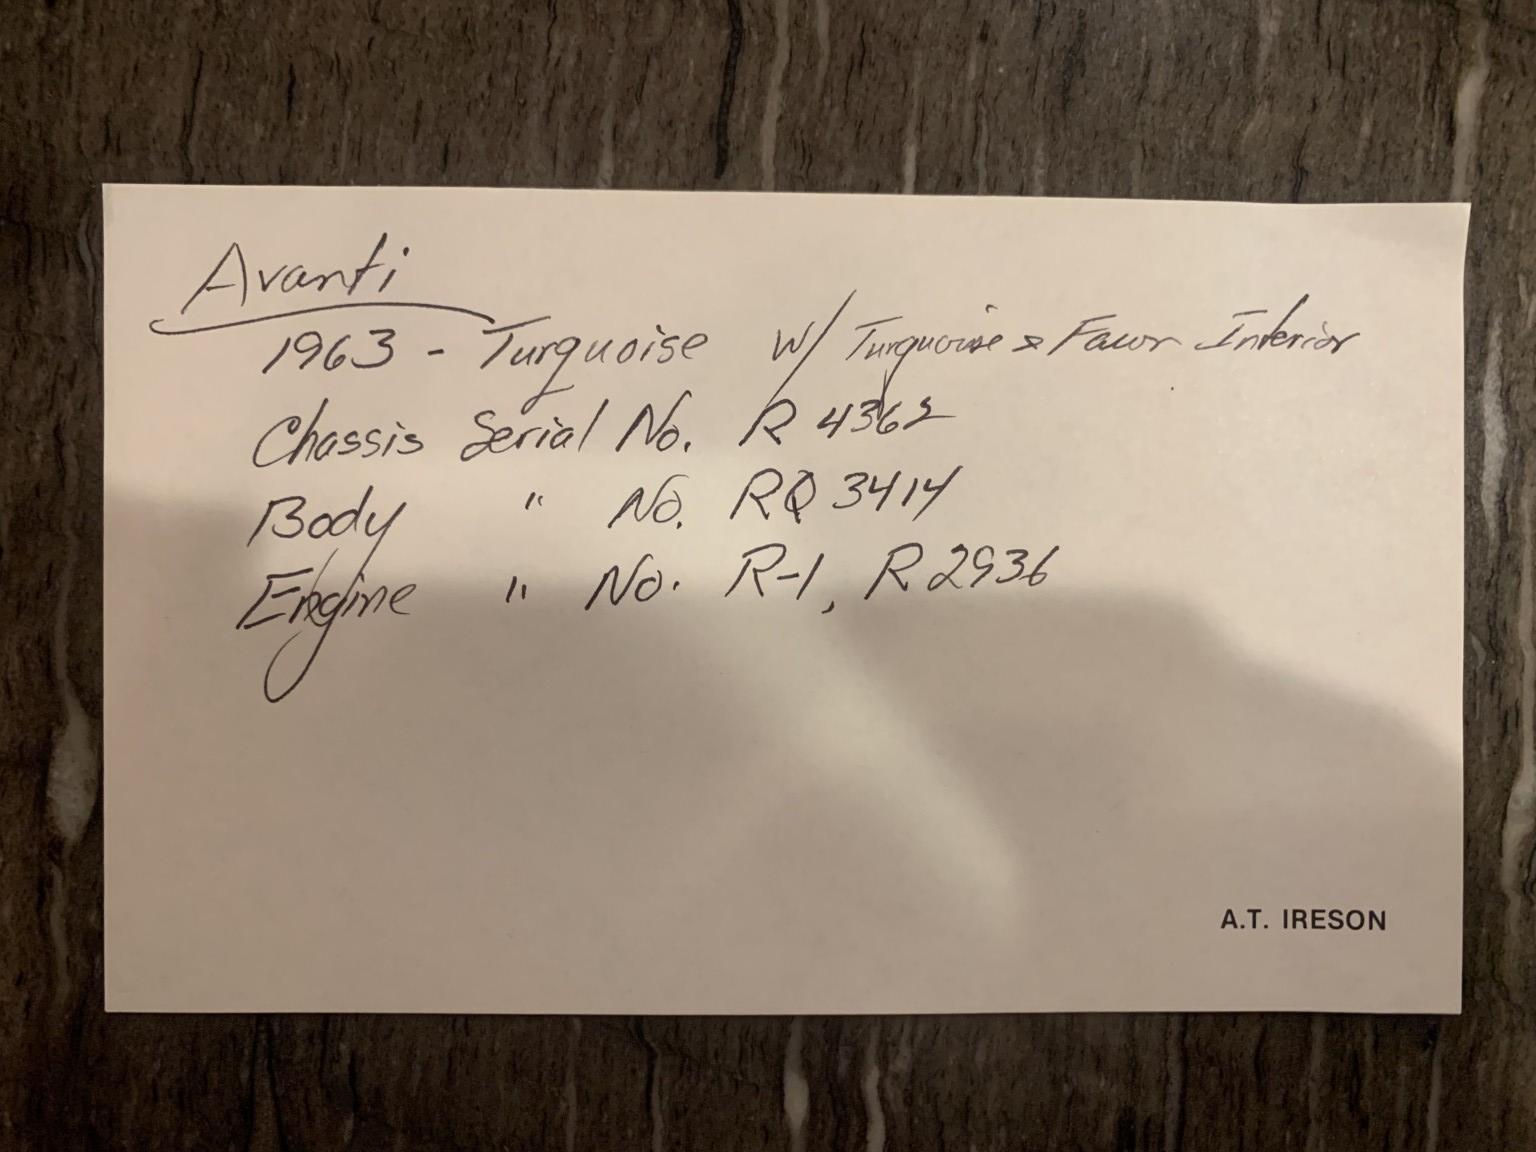 Avanti
1963 - Turquoise w/ Turquoise & Fawn Interior
Chassis Serial No. R 4362
Body " No. RQ 3414
Engine " No. R-1, R 2936
A.T. IRESON